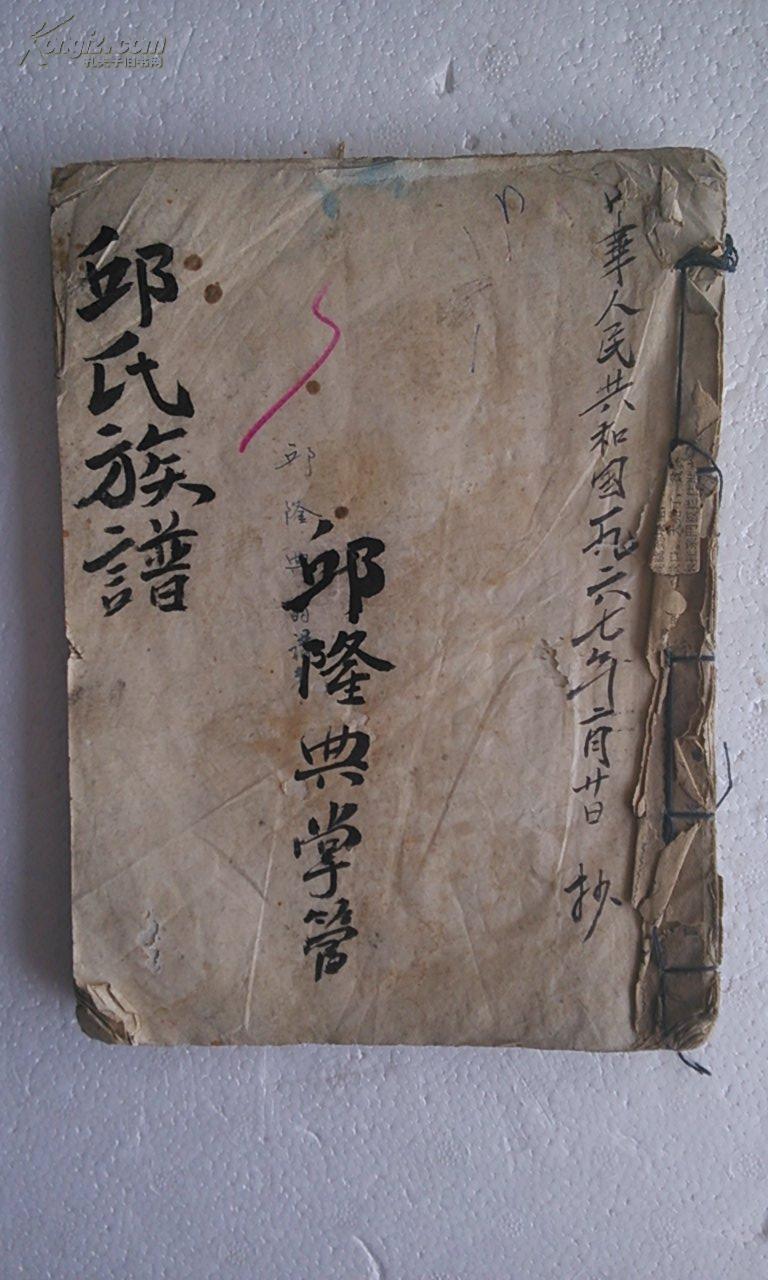 中華人民共和國一九六七年二月廿日 抄
邱隆典掌管
邱隆典
邱氏族譜
Kongfz.com
孔夫子旧书网